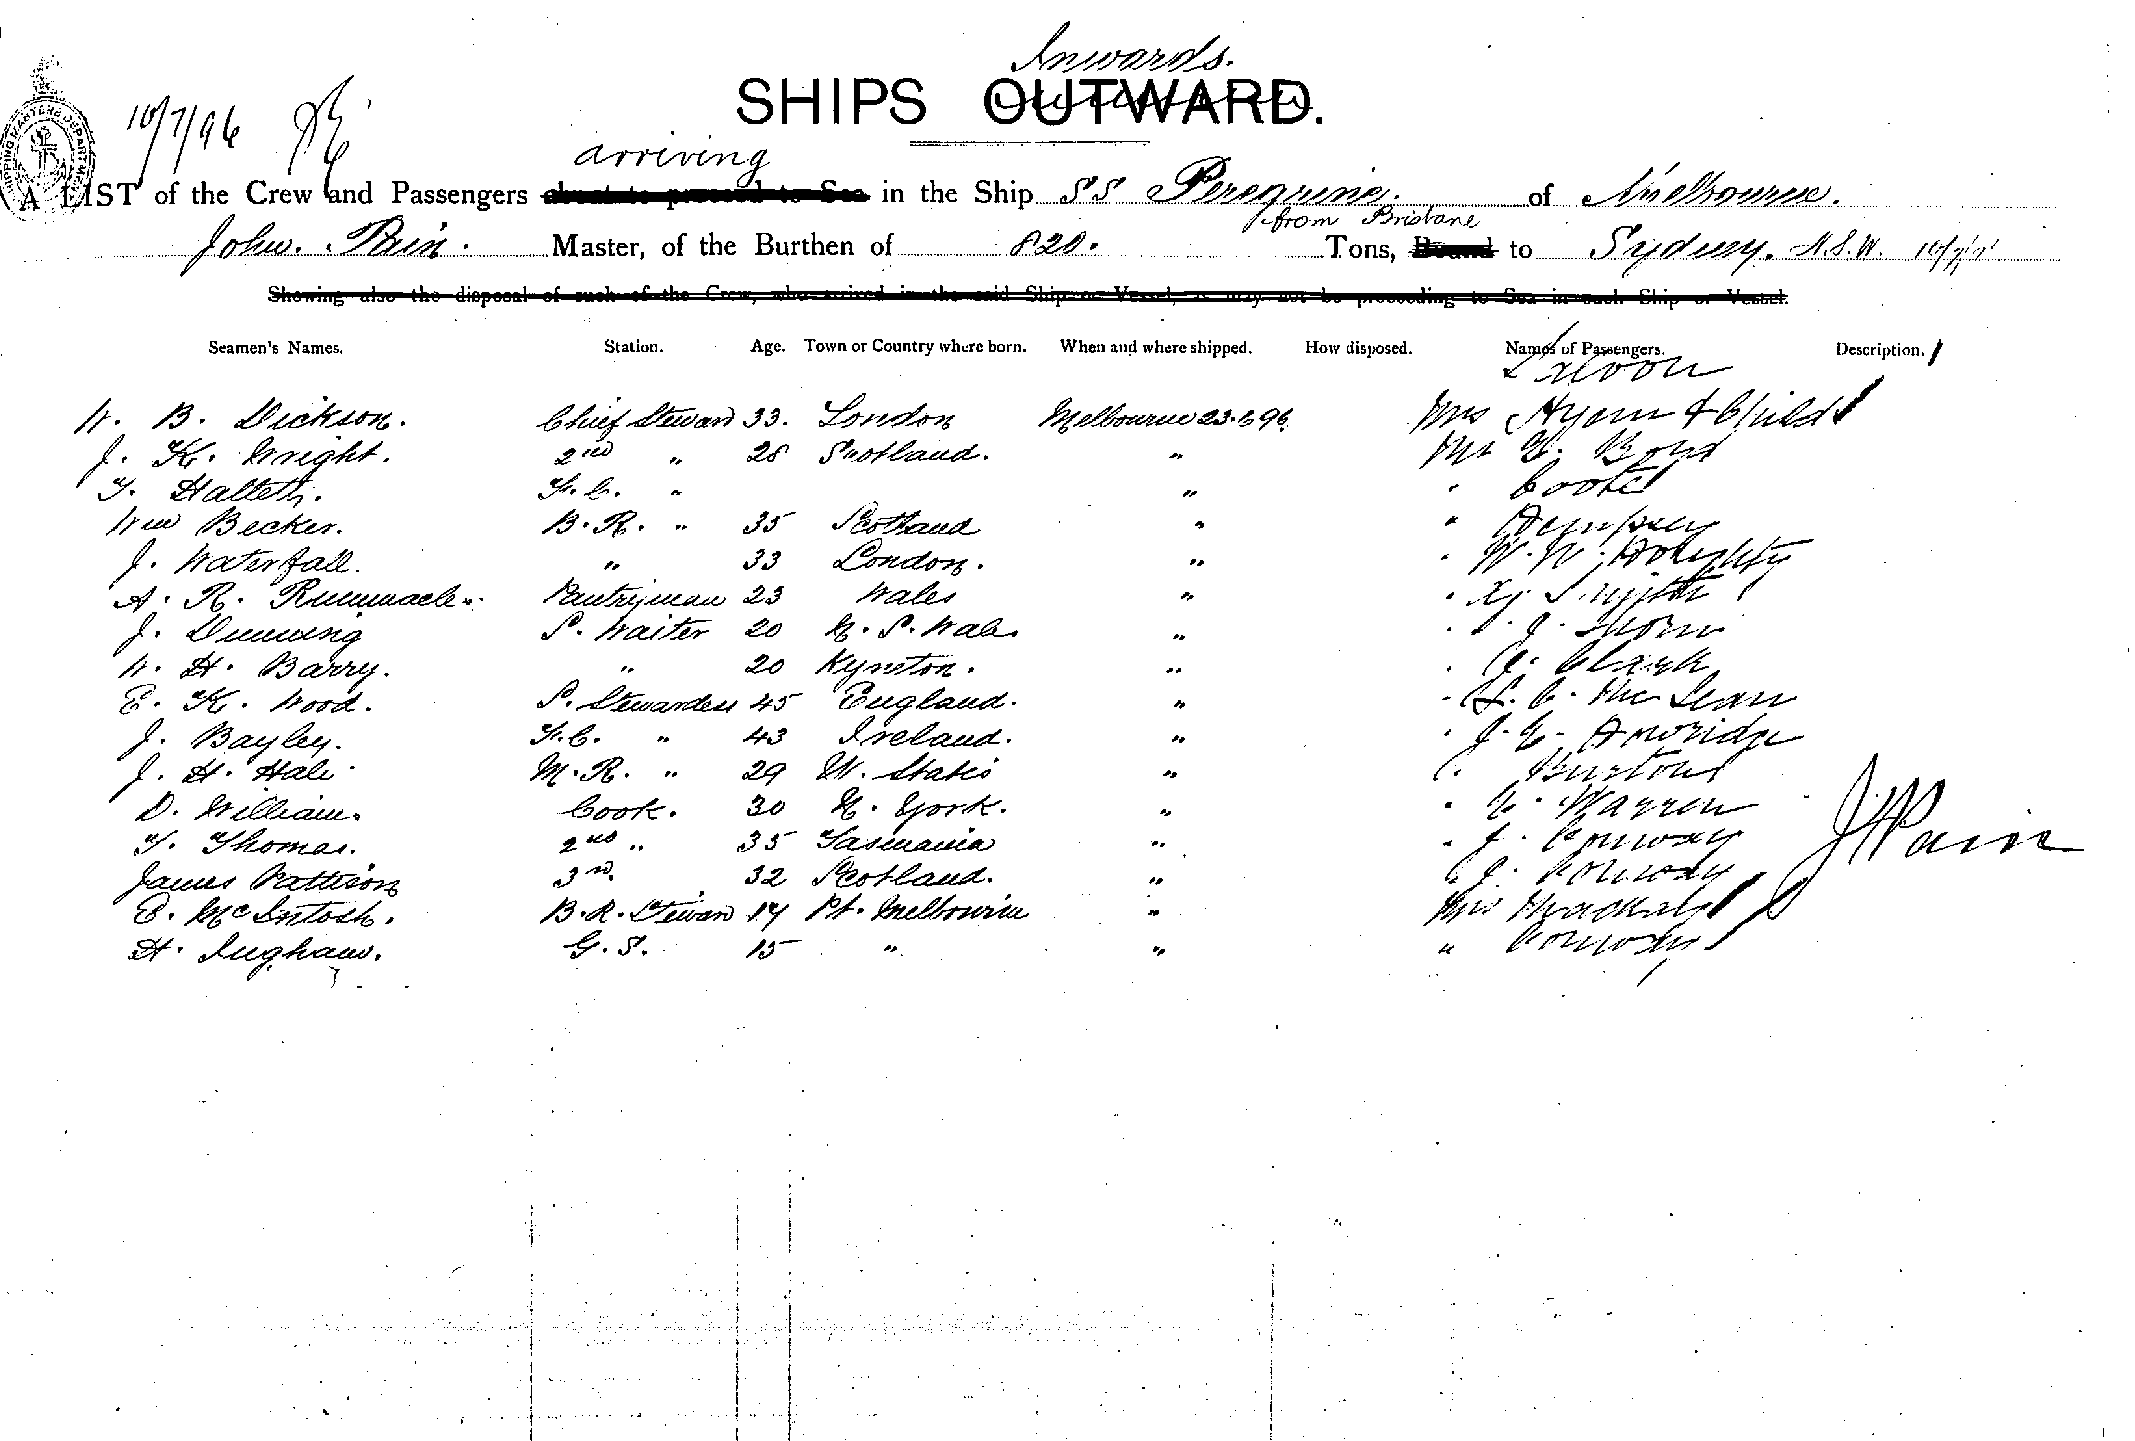 Inwards.
SHIPS OUTWARD.
10/7/96
arriving
A LIST of the Crew and Passengers about to proceed to Sea in the Ship SS Peregrine. of Melbourne.
from Brisbane
John. Pain. Master, of the Burthen of 820. Tons, Bound to Sydney. N.S.W.
Showing also the disposal of such of the Crew, who arrived in the said Ship or Vessel, as may not be proceeding to Sea in such Ship or Vessel.
Seamen's Names. Station. Age. Town or Country where born. When and where shipped. How disposed. Names of Passengers. Description.
Saloon
W. B. Dickson. Chief Steward 33. London Melbourne 23.6.96. Mrs & Child
J. K. Wright. 2nd " 28 Scotland. " Mr Bond
T. Halleth. F.C. " " " Coote
Wm Becker. B.R. " 35 Scotland " " Dempsey
J. Waterfall. " 33 London. " " W. W. Doughty
A. R. Pantryman 23 Wales " " Hy Smith
J. Dunning S. Waiter 20 N. S. Wales " " J. Thom
W. H. Barry. " 20 Kyneton. " " Clark
E. K. Wood. S. Stewardess 45 England. " " S. C. McLean
J. Bayley. F.C. " 43 Ireland. " " J. E.
J. H. Hale M.R. " 29 U. States " " Burton
D. William. Cook. 30 N. York. " " Warren
T. Thomas. 2nd " 35 Tasmania " " J. Conway
James Pattison 3rd. 32 Scotland. " " J. Conway
E. McIntosh. B.R. Steward 17 Pt. Melbourne " Mrs Mackay
H. Ingham. G.S. 15 " " " Conway
J Pain